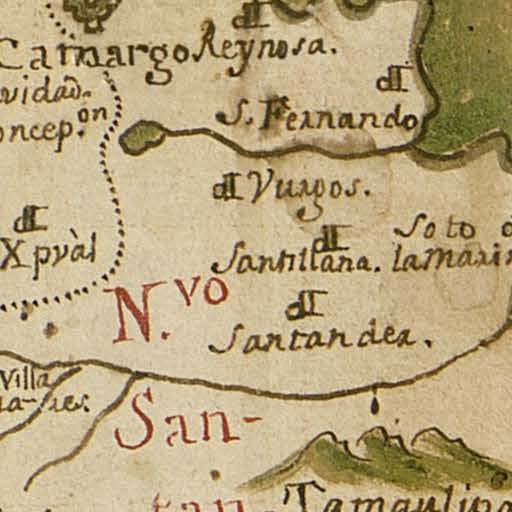 Camargo Reynosa.
vidad.
oncep.on
S. Fernando
Vurgos.
Xpvàl
Santillana.
Soto
lamarin
N.vo
Santander.
Villa
San-
tan-
Tamaulipa